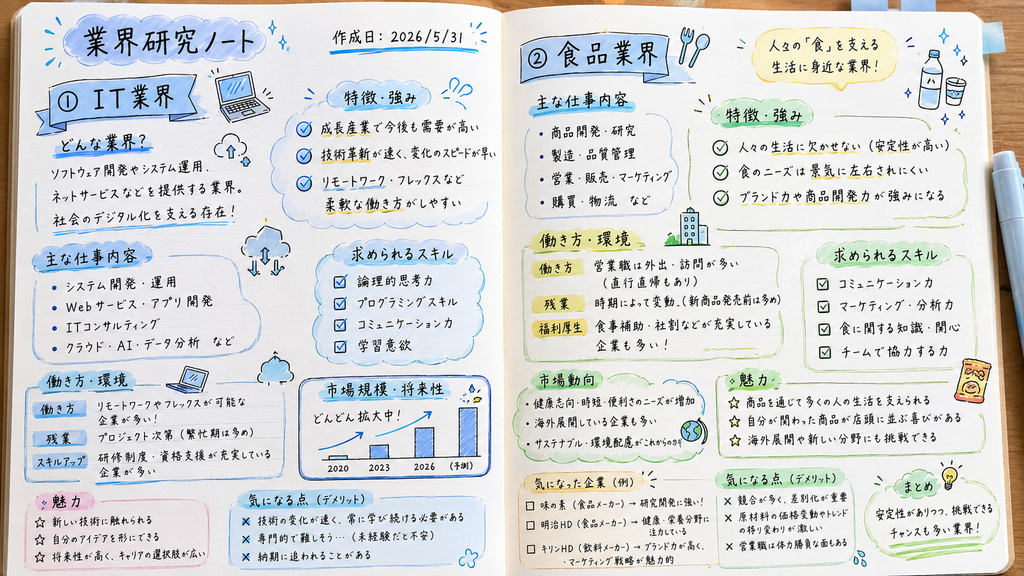 業界研究ノート
作成日：2026/5/31
① IT業界
どんな業界？
ソフトウェア開発やシステム運用、
ネットサービスなどを提供する業界。
社会のデジタル化を支える存在！
特徴・強み
成長産業で今後も需要が高い
技術革新が速く、変化のスピードが早い
リモートワーク・フレックスなど
柔軟な働き方がしやすい
主な仕事内容
・システム開発・運用
・Webサービス・アプリ開発
・ITコンサルティング
・クラウド・AI・データ分析 など
求められるスキル
論理的思考力
プログラミングスキル
コミュニケーション力
学習意欲
働き方・環境
働き方 リモートワークやフレックスが可能な
企業が多い！
残業 プロジェクト次第（繁忙期は多め）
スキルアップ 研修制度・資格支援が充実している
企業が多い
市場規模・将来性
どんどん拡大中！
2020 2023 2026 (予測)
魅力
☆ 新しい技術に触れられる
☆ 自分のアイデアを形にできる
☆ 将来性が高く、キャリアの選択肢が広い
気になる点（デメリット）
× 技術の変化が速く、常に学び続ける必要がある
× 専門的で難しそう…（未経験だと不安）
× 納期に追われることがある
② 食品業界
人々の「食」を支える
生活に身近な業界！
主な仕事内容
・商品開発・研究
・製造・品質管理
・営業・販売・マーケティング
・購買・物流 など
特徴・強み
人々の生活に欠かせない（安定性が高い）
食のニーズは景気に左右されにくい
ブランド力や商品開発力が強みになる
働き方・環境
働き方 営業職は外出・訪問が多い
（直行直帰もあり）
残業 時期によって変動、（新商品発売前は多め）
福利厚生 食事補助・社割などが充実している
企業も多い！
求められるスキル
コミュニケーション力
マーケティング・分析力
食に関する知識・関心
チームで協力する力
市場動向
・健康志向・時短・便利さのニーズが増加
・海外展開している企業も多い
・サステナブル・環境配慮がこれからのカギ
魅力
☆ 商品を通じて多くの人の生活を支えられる
☆ 自分が関わった商品が店頭に並ぶ喜びがある
☆ 海外展開や新しい分野にも挑戦できる
気になった企業（例）
□ 味の素（食品メーカー）→ 研究開発に強い！
□ 明治HD（食品メーカー）→ 健康・栄養分野に
注力している
□ キリンHD（飲料メーカー）→ ブランド力が高く、
・マーケティング戦略が魅力的
気になる点（デメリット）
× 競合が多く、差別化が重要
× 原材料の価格変動やトレンド
の移り変わりが激しい
× 営業職は体力勝負な面もある
まとめ
安定性がありつつ、挑戦できる
チャンスも多い業界！